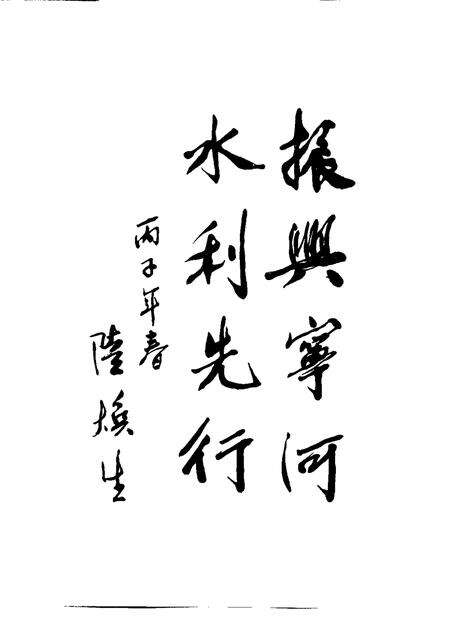 振興寧河
水利先行
丙子年春
陸焕生